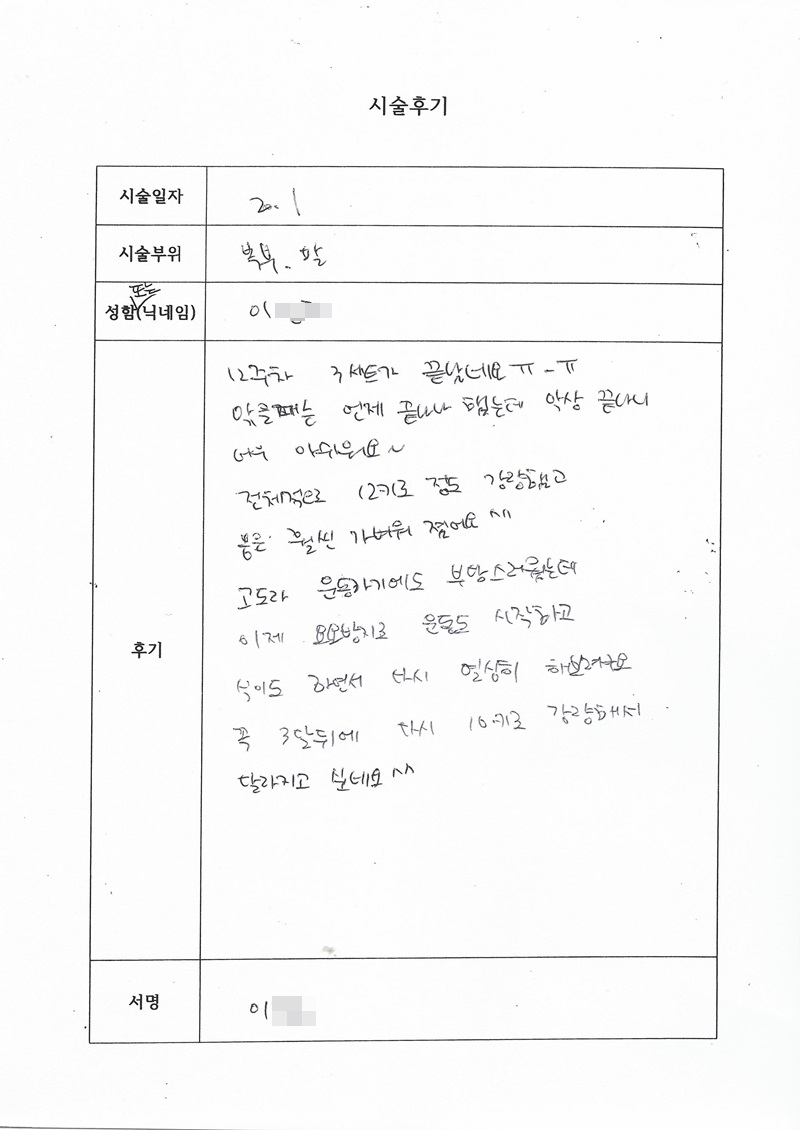 시술후기
시술일자 20. 1
시술부위 복부. 팔
또는
성함(닉네임) 이
12주차 3세트가 끝났네요 ㅠ-ㅠ
맞을때는 언제 끝나나 했는데 막상 끝나니
너무 아쉬워요~
전체적으로 12키로 정도 감량했고
몸은 훨씬 가벼워 졌어요 ^^
고도라 운동하기에도 부담스러웠는데
이제 요요방지로 운동도 시작하고
후기
식이도 하면서 다시 열심히 해보려구요
꼭 3달뒤에 다시 10키로 감량해서
달라지고 싶네요 ^^
서명 이